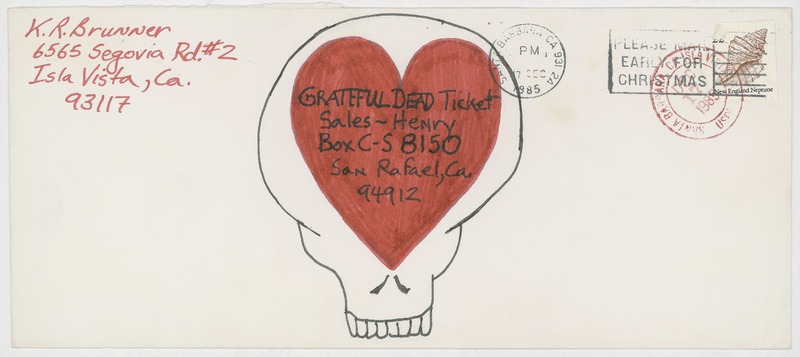 K.R.Brunner
6565 Segovia Rd.#2
Isla Vista, Ca.
93117
GRATEFUL DEAD Ticket
Sales - Henry
Box C-S 8150
San Rafael, Ca.
94912
SANTA BARBARA CA 931 2A
PM
17 DEC
1985
PLEASE MAIL
EARLY FOR
CHRISTMAS
22
New England Neptune
SANTA BARBARA
ISLA VISTA
1985
USPO